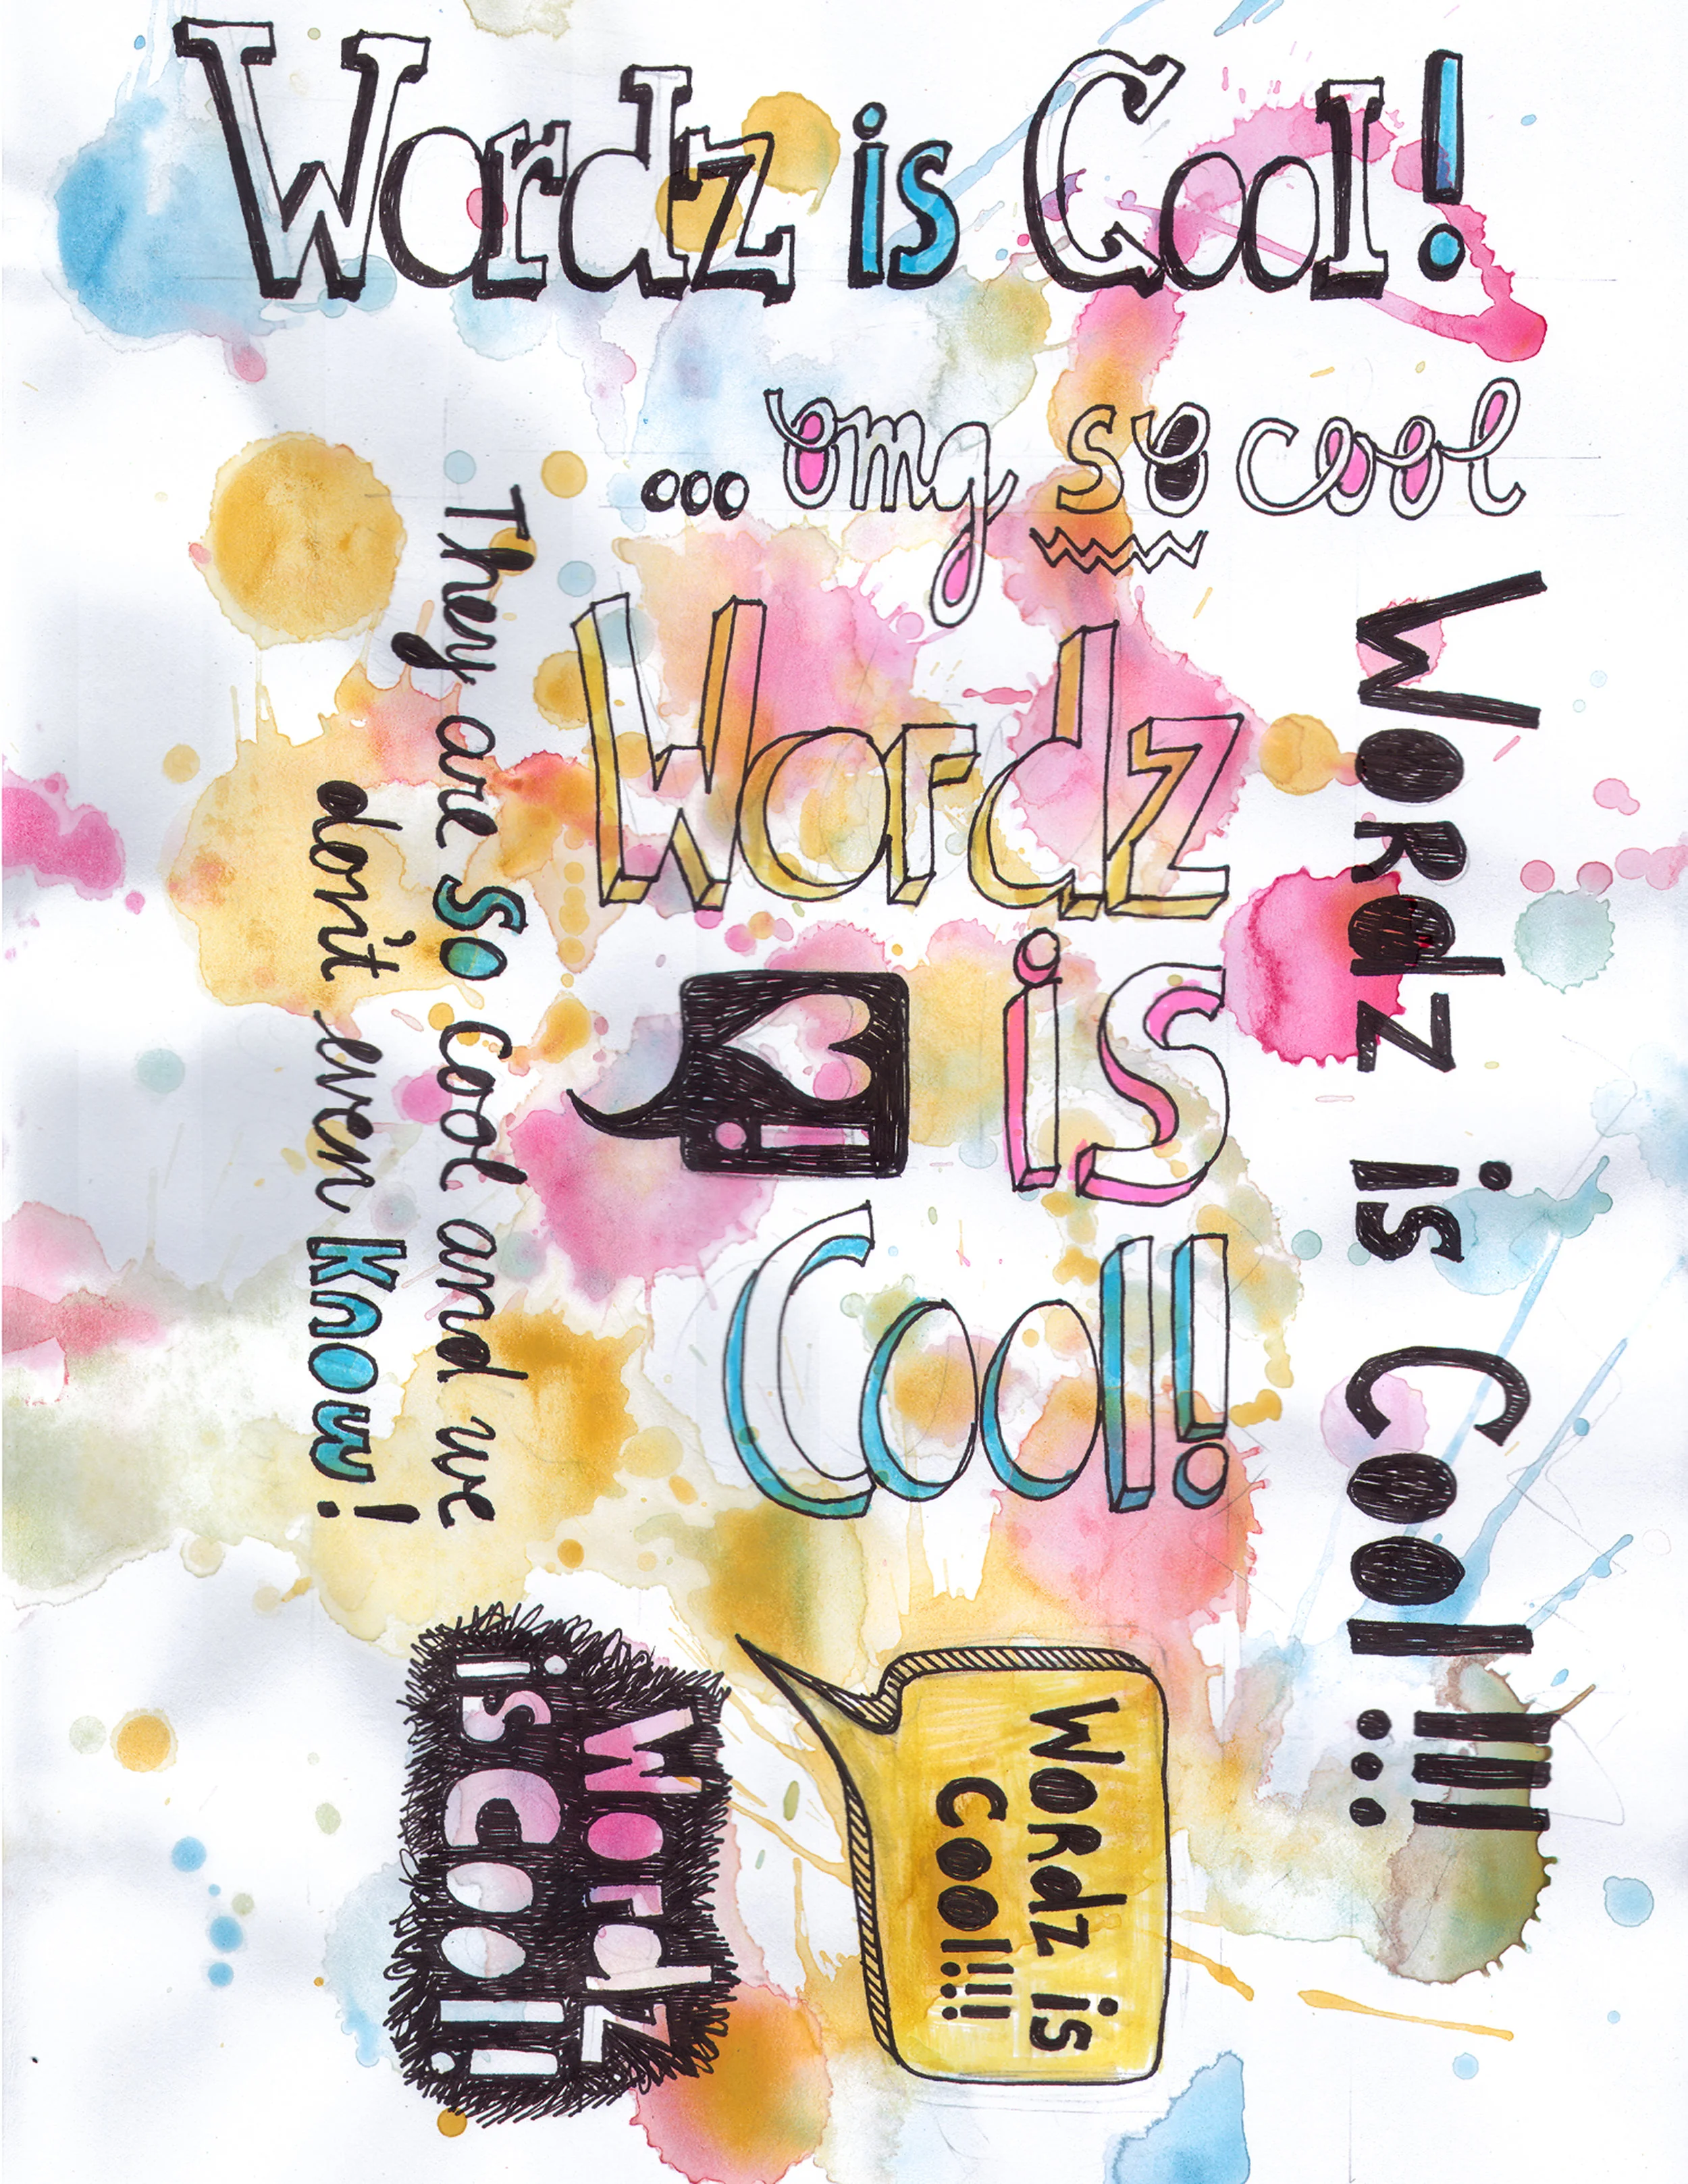 Wordz is Cool!
... omg so cool
Wordz
is
Cool!
!
Wordz is Cool!!!
They are So Cool and we
don't even Know!
Wordz is
Cool!!!
Wordz
is Cool!